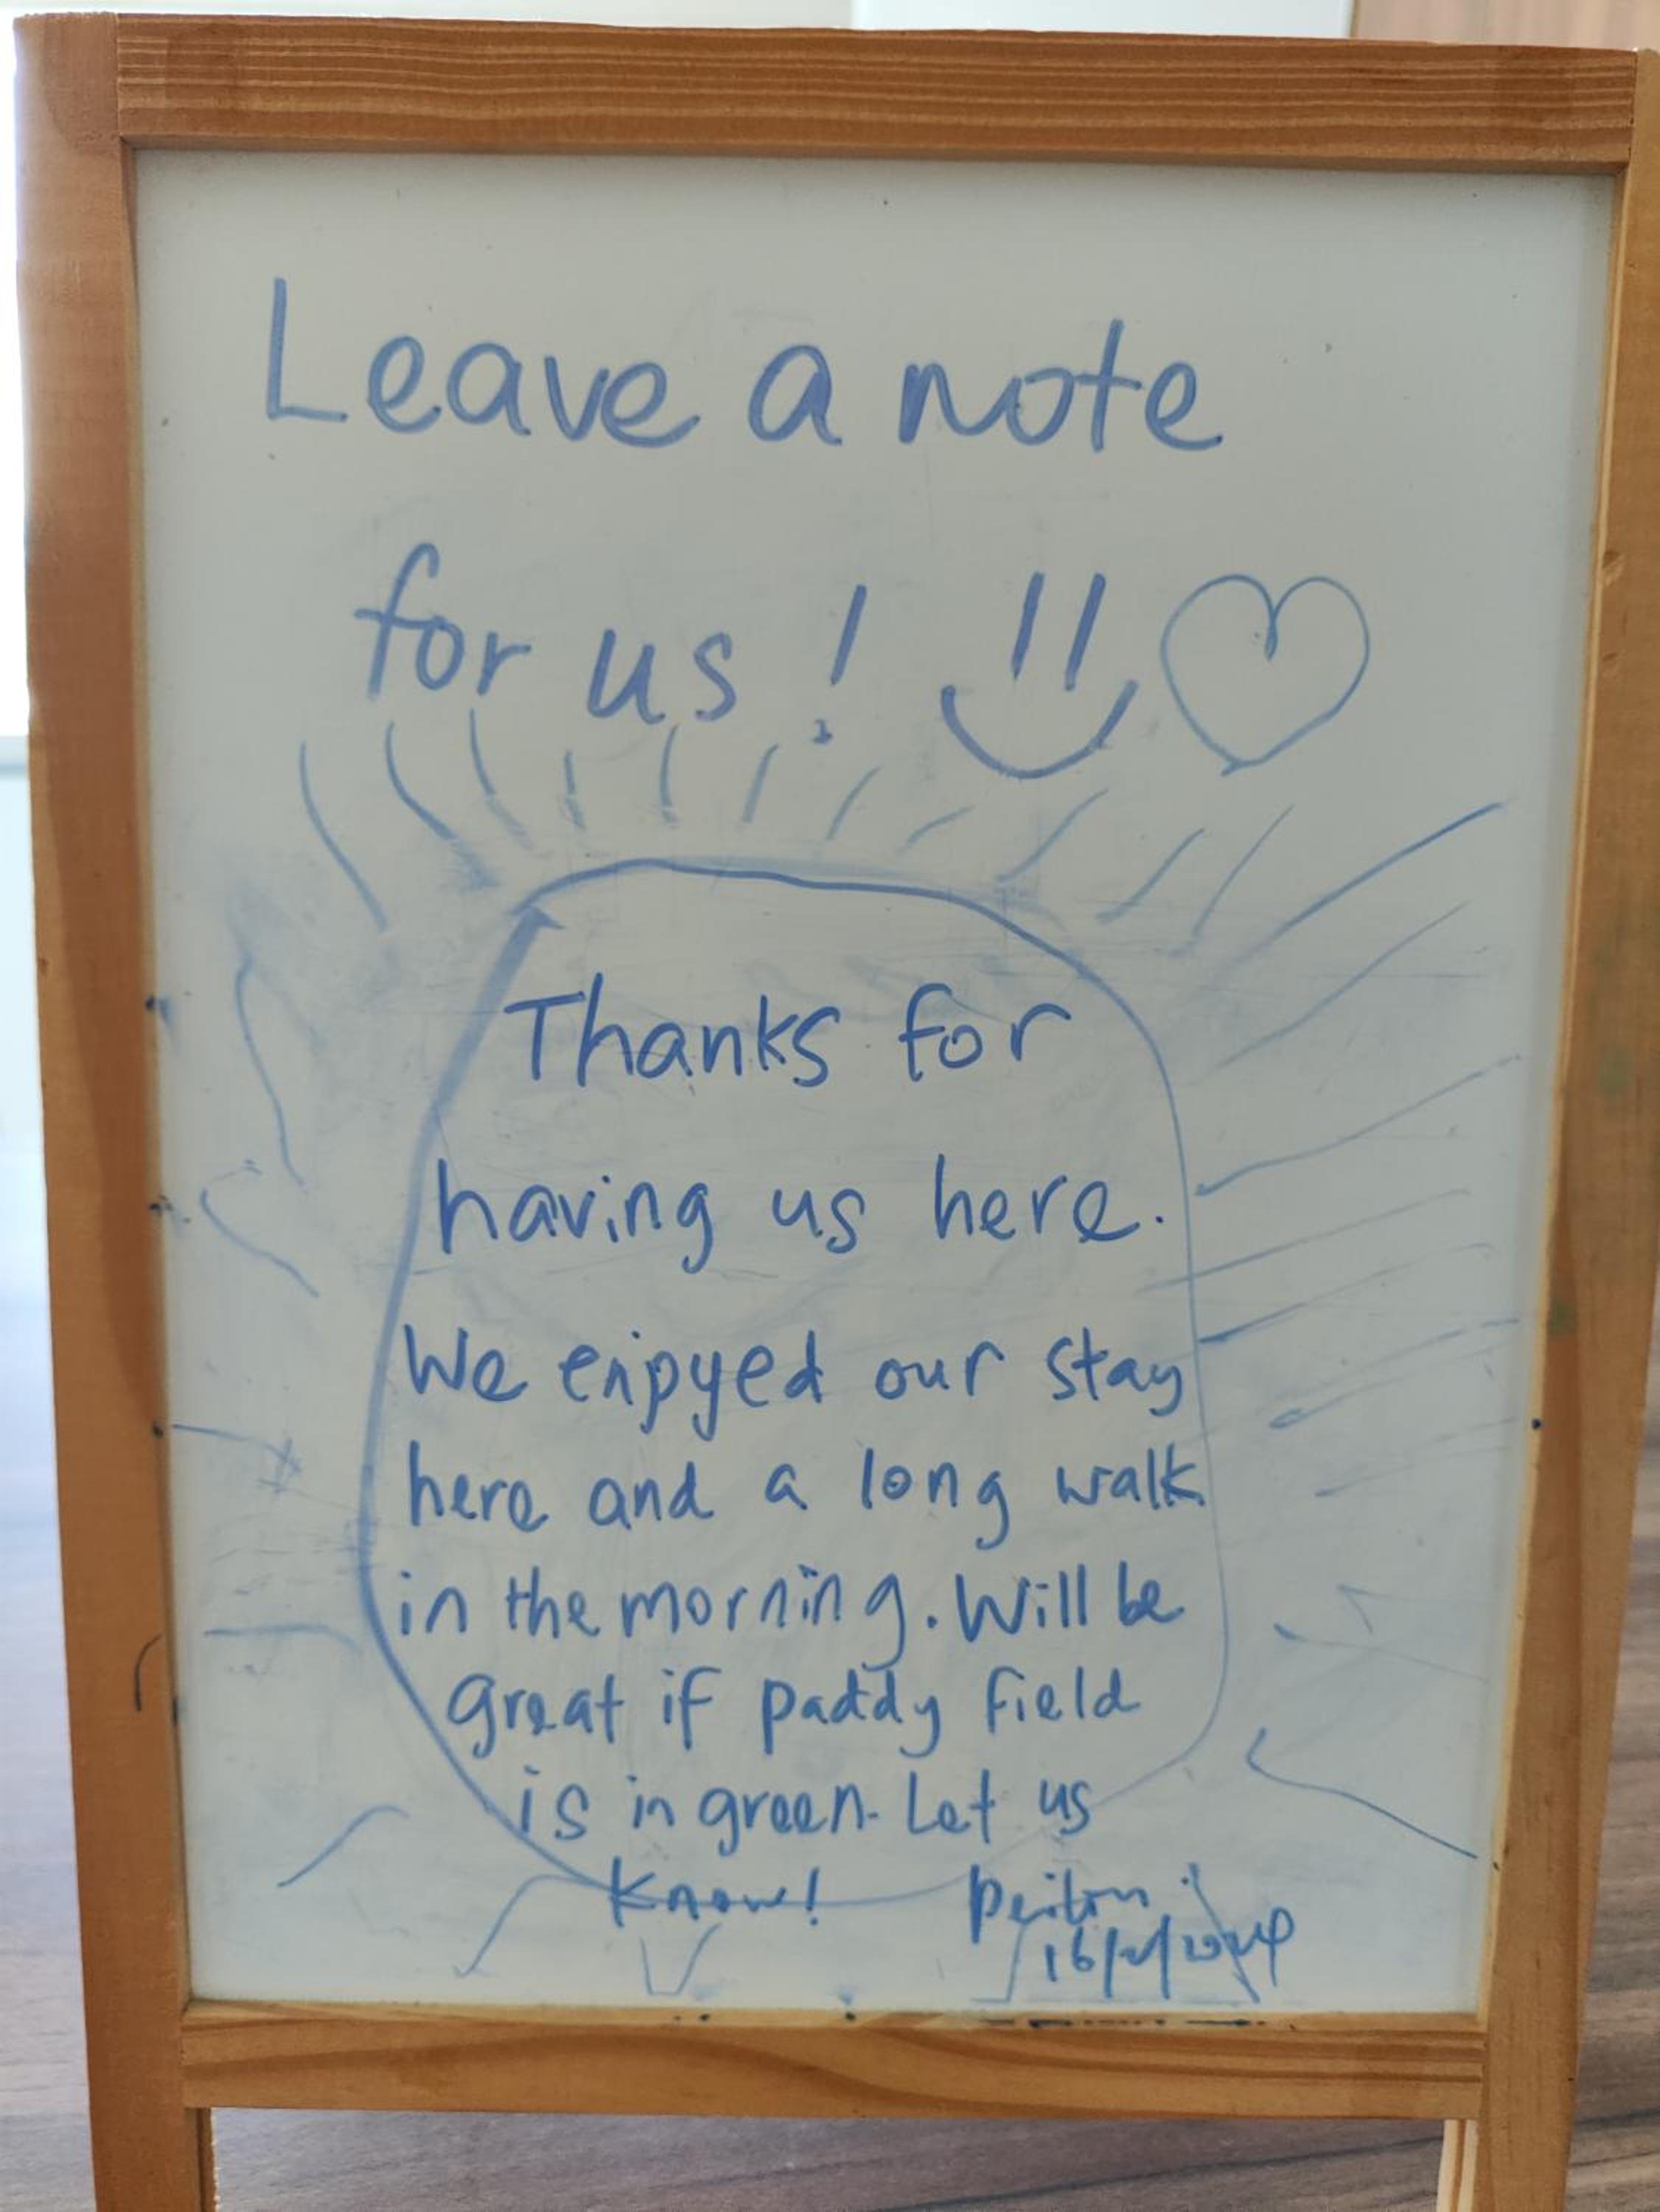 Leave a note
for us!
Thanks for
having us here.
We enjoyed our stay
here and a long walk
in the morning. Will be
great if paddy field
is in green. Let us
know!